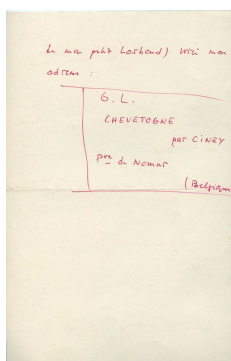 de mon petit Lesbend) voici mon
adresse :
G. L.
CHEVETOGNE
par CINEY
pce de Namur
(Belgique